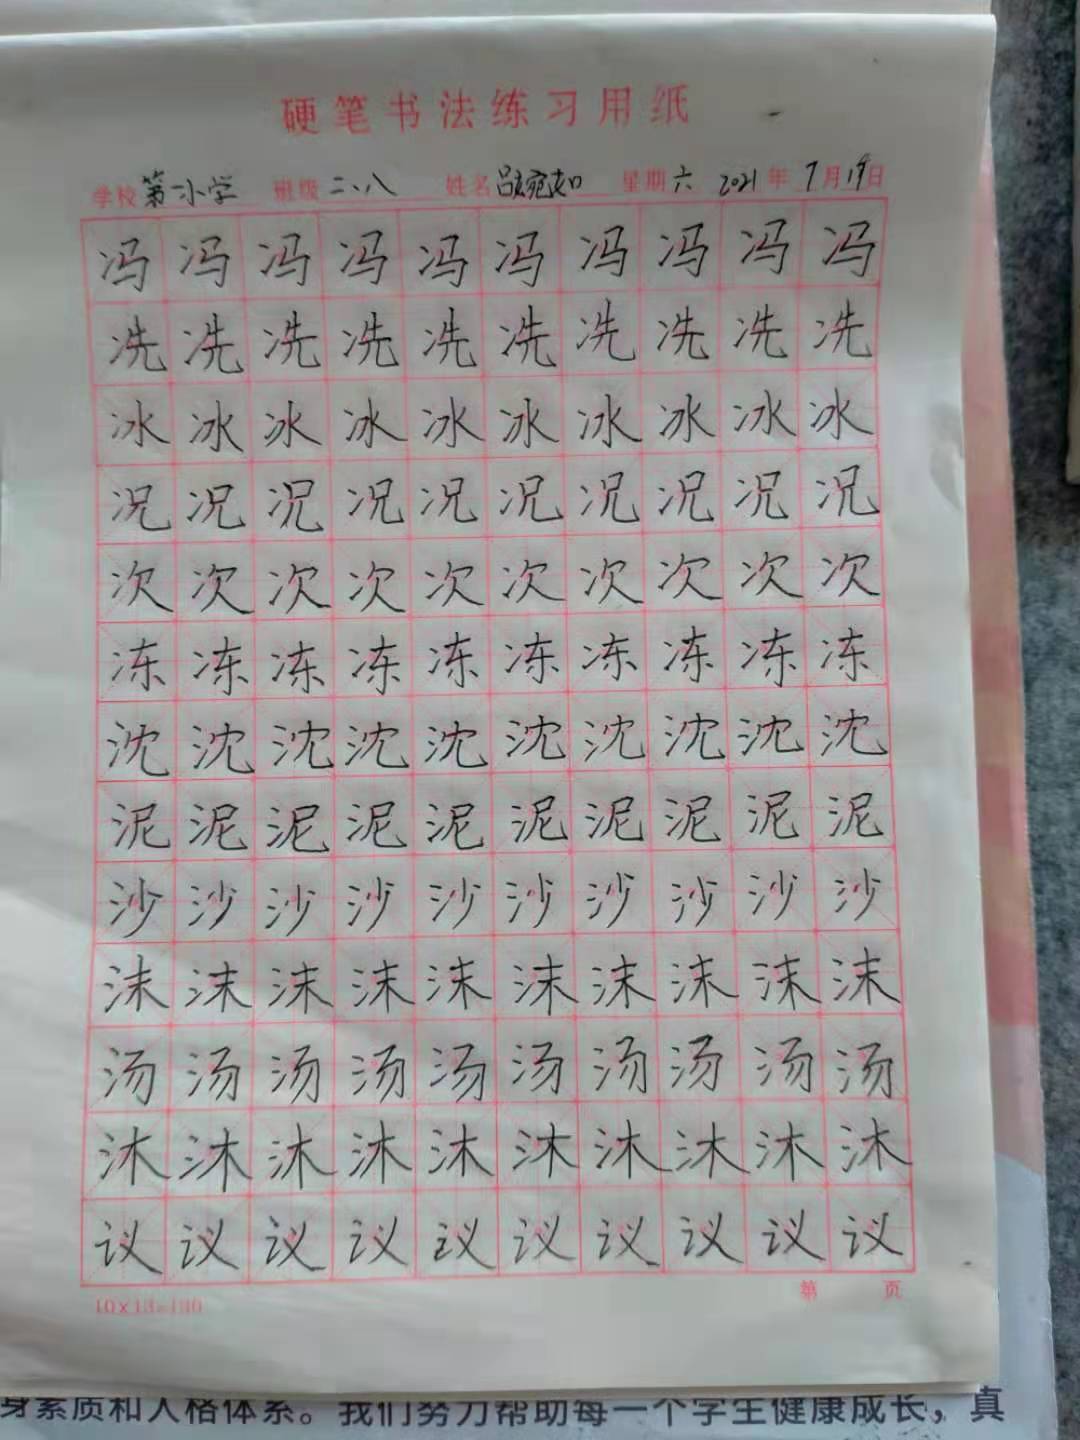 硬笔书法练习用纸
学校 第一小学 班级 二、八 姓名 吕宛如 星期 六 2021 年 7 月 19 日
冯冯冯冯冯冯冯冯冯冯
冼冼冼冼冼冼冼冼冼冼
冰冰冰冰冰冰冰冰冰冰
况况况况况况况况况况
次次次次次次次次次次
冻冻冻冻冻冻冻冻冻冻
沈沈沈沈沈沈沈沈沈沈
泥泥泥泥泥泥泥泥泥泥
沙沙沙沙沙沙沙沙沙沙
沫沫沫沫沫沫沫沫沫沫
汤汤汤汤汤汤汤汤汤汤
沐沐沐沐沐沐沐沐沐沐
议议议议议议议议议议
第 页
10×13=130
身素质和人格体系。我们努力帮助每一个学生健康成长，真